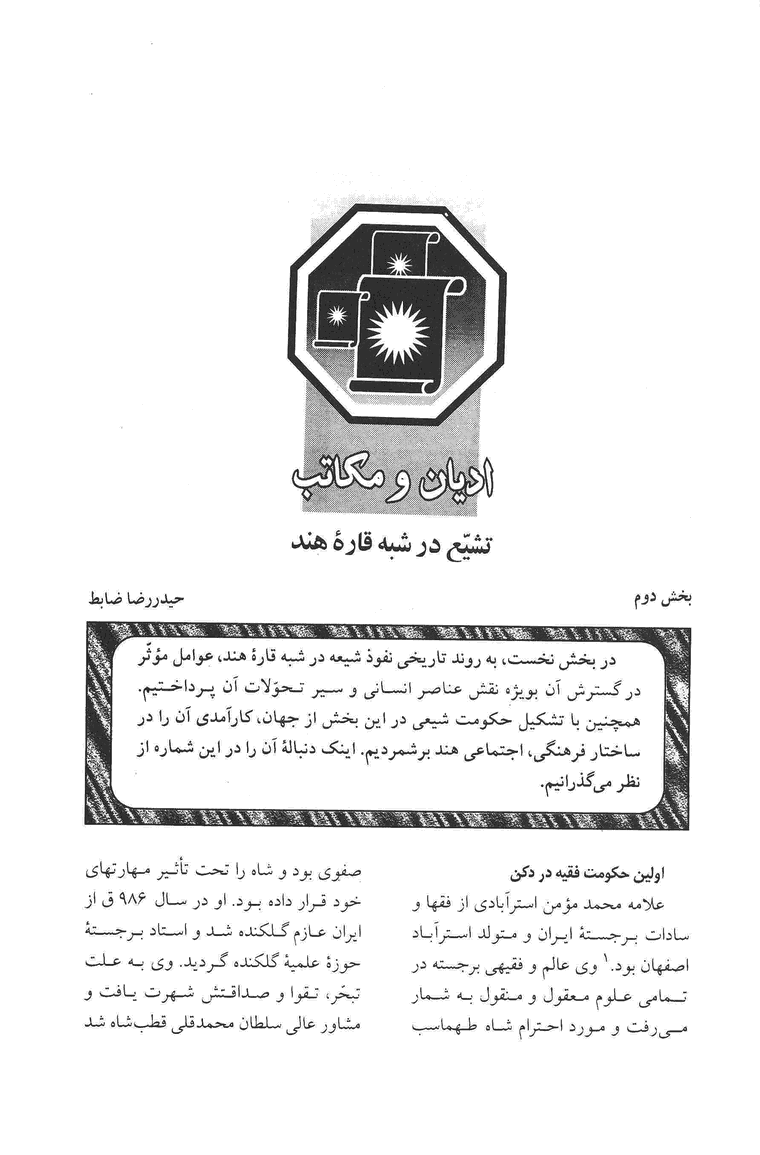 ادیان و مکاتب
تشیّع در شبه قارهٔ هند
بخش دوم
حیدررضا ضابط
در بخش نخست، به روند تاریخی نفوذ شیعه در شبه قاره هند، عوامل مؤثّر
در گسترش آن بویژه نقش عناصر انسانی و سیر تحوّلات آن پرداختیم.
همچنین با تشکیل حکومت شیعی در این بخش از جهان، کارآمدی آن را در
ساختار فرهنگی، اجتماعی هند برشمردیم. اینک دنبالهٔ آن را در این شماره از
نظر می‌گذرانیم.
اولین حکومت فقیه در دکن
علامه محمد مؤمن استرآبادی از فقها و
سادات برجستهٔ ایران و متولد استرآباد
اصفهان بود.۱ وی عالم و فقیهی برجسته در
تمامی علوم معقول و منقول به شمار
می‌رفت و مورد احترام شاه طهماسب
صفوی بود و شاه را تحت تأثیر مهارتهای
خود قرار داده بود. او در سال ۹۸۶ ق از
ایران عازم گلکنده شد و استاد برجستهٔ
حوزهٔ علمیهٔ گلکنده گردید. وی به علت
تبحّر، تقوا و صداقتش شهرت یافت و
مشاور عالی سلطان محمدقلی قطب‌شاه شد